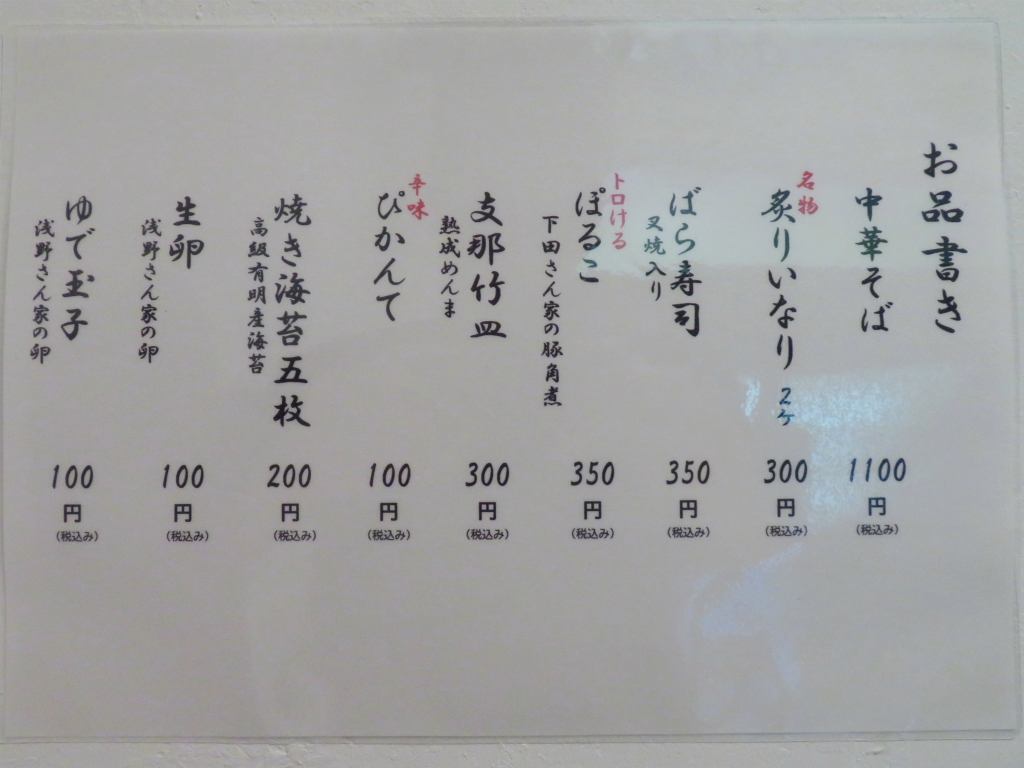 お品書き
中華そば
1100
円
(税込み)
名物
炙りいなり 2ヶ
300
円
(税込み)
ばら寿司
叉焼入り
350
円
(税込み)
トロける
ぽるこ
下田さん家の豚角煮
350
円
(税込み)
支那竹皿
熟成めんま
300
円
(税込み)
辛味
ぴかんて
100
円
(税込み)
焼き海苔五枚
高級有明産海苔
200
円
(税込み)
生卵
浅野さん家の卵
100
円
(税込み)
ゆで玉子
浅野さん家の卵
100
円
(税込み)